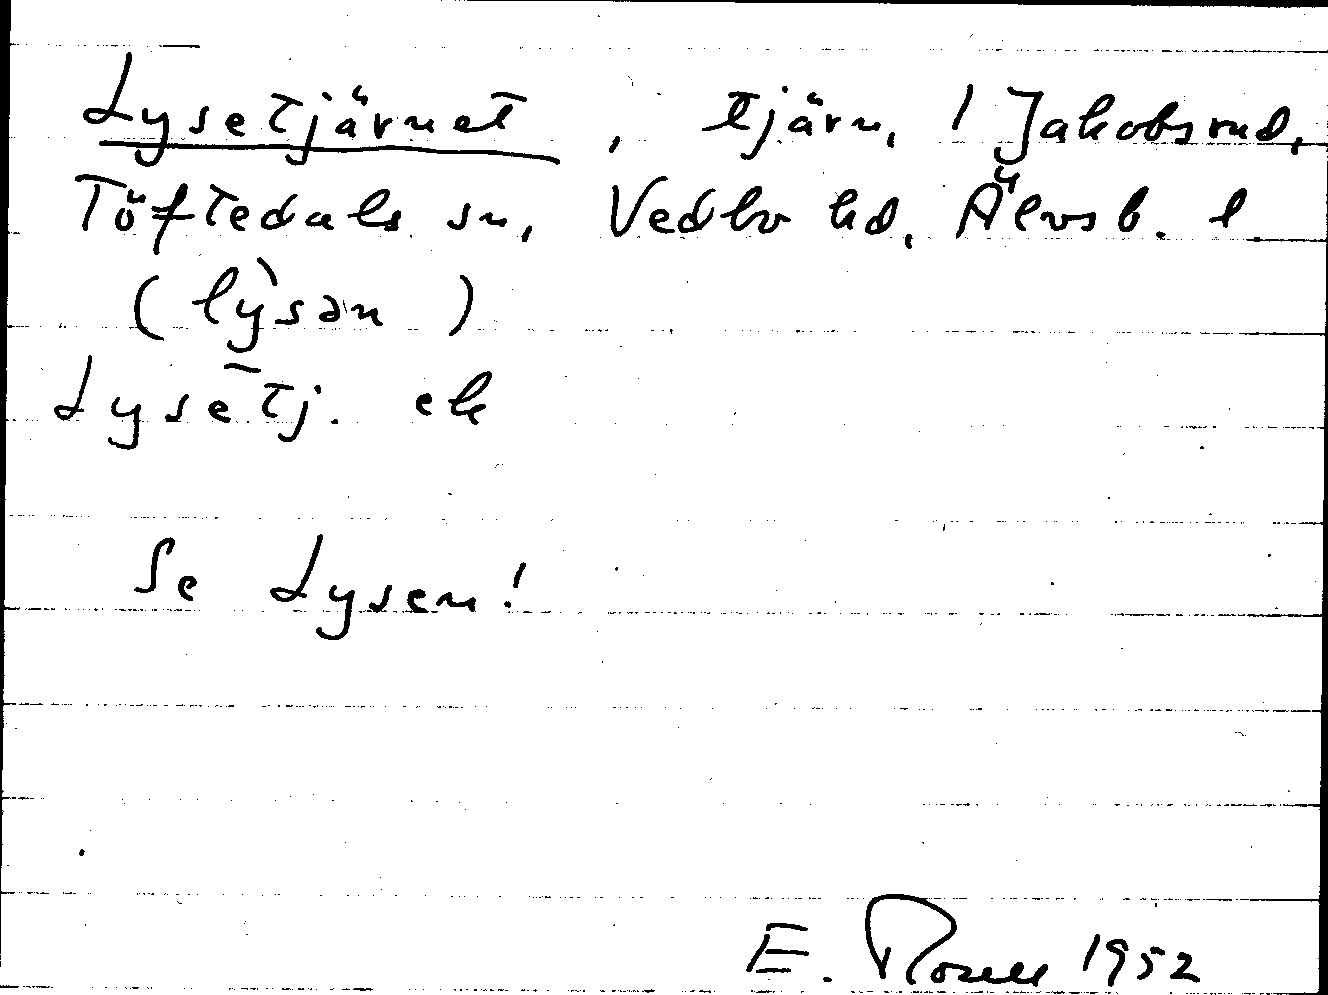 Lysetjärnet, tjärn, 1 Jakobsrud,
Töftedals sn, Vedbo hd, Älvsb. l
(lỳsən)
Lysetj. ek
Se Lysen!
E. Rosell 1952